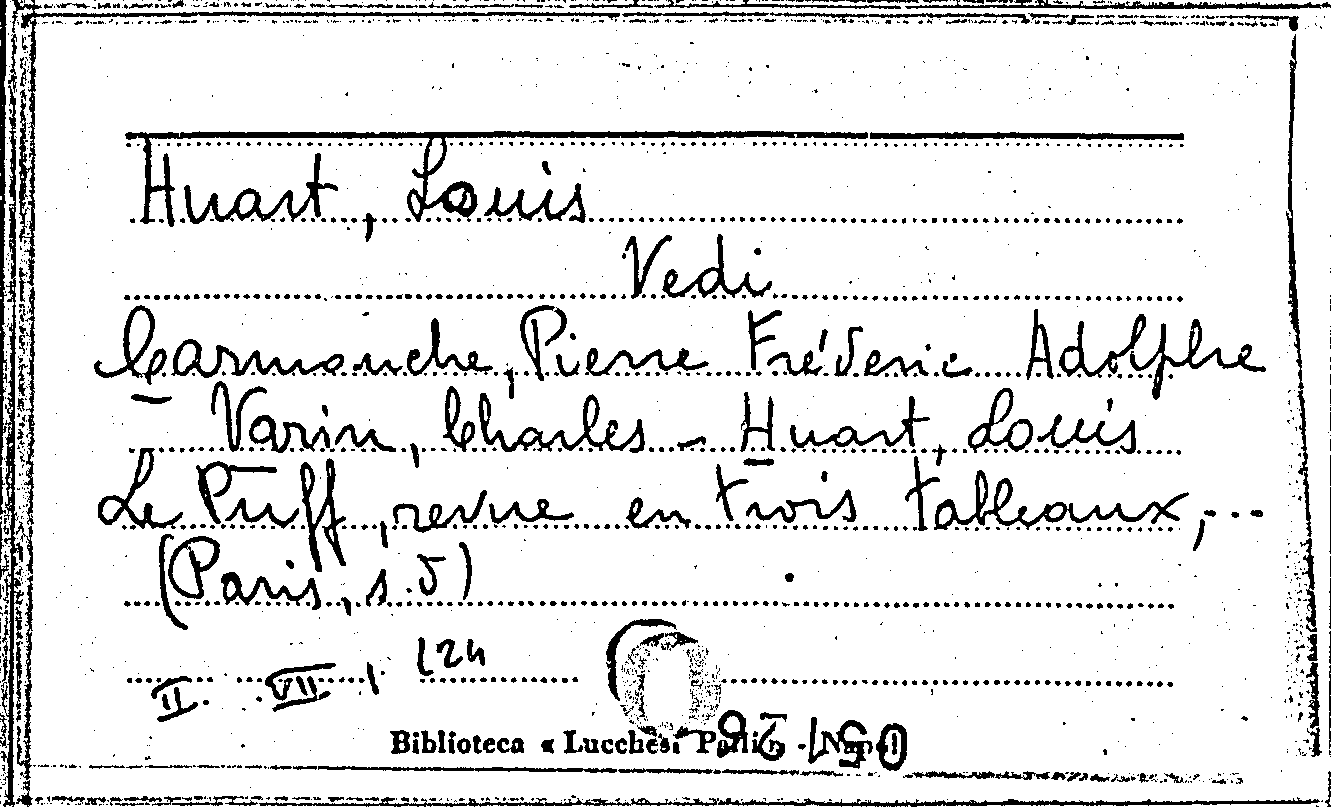 Huart, Louis
Vedi
Carmouche, Pierre Fréderic Adolphe
Varin, Charles - Huart, Louis
Le Puff, revue en trois tableaux,...
(Paris, s.d)
II. VII. 124
Biblioteca « Lucchesi Palli » - Napoli